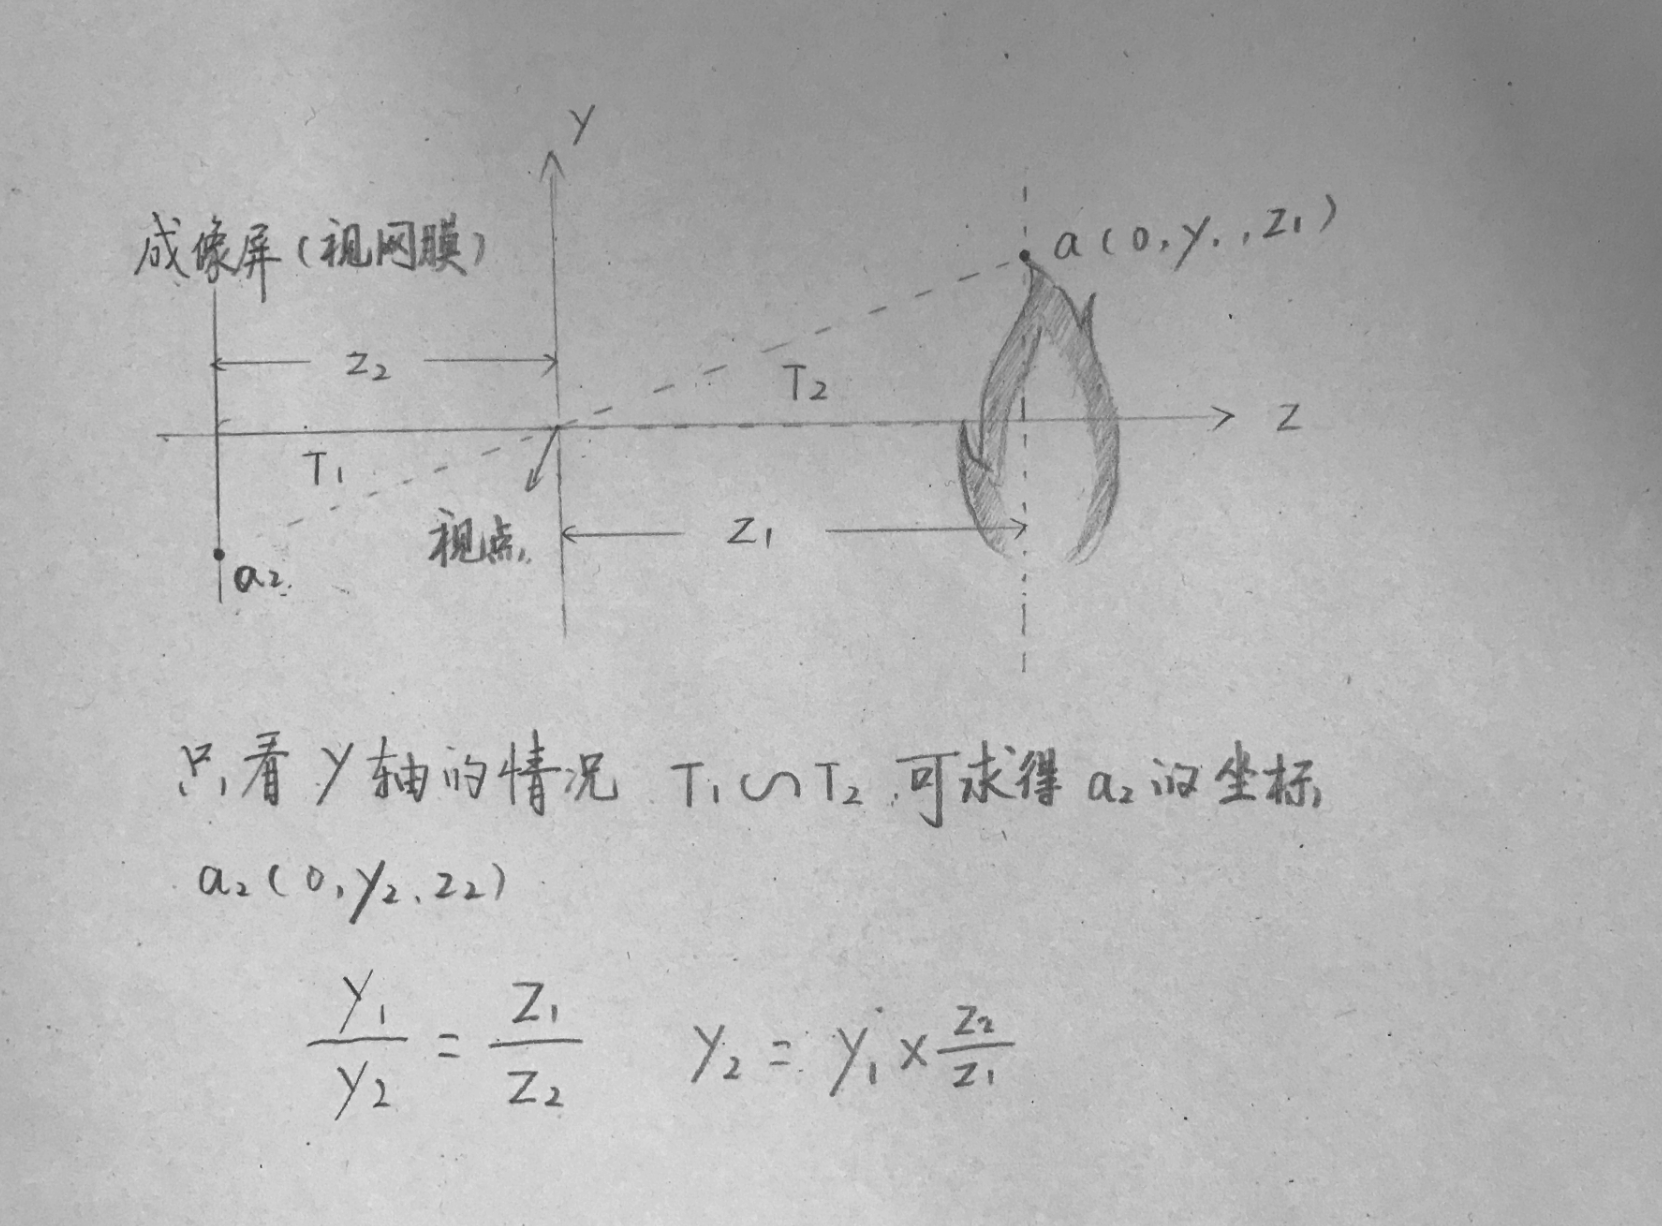 Y
成像屏（视网膜）
a(0,y1,z1)
z2
T2
Z
T1
视点
z1
a2
只看Y轴的情况 T1∽T2 可求得 a2的坐标
a2(0,y2,z2)
y1/y2 = z1/z2  y2 = y1×z2/z1